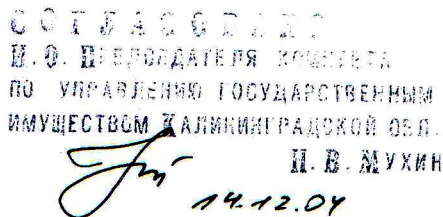 СОГЛАСОВАНО
И.О. ПРЕДСЕДАТЕЛЯ КОМИТЕТА
ПО УПРАВЛЕНИЮ ГОСУДАРСТВЕННЫМ
ИМУЩЕСТВОМ КАЛИНИНГРАДСКОЙ ОБЛ.
И.В. МУХИН
14.12.04